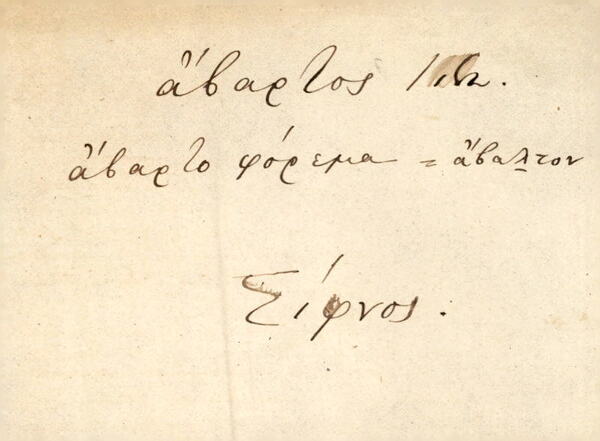 ἄβαρτος
ἄβαρτο φόρεμα = ἄβαλτον
Σίφνος.